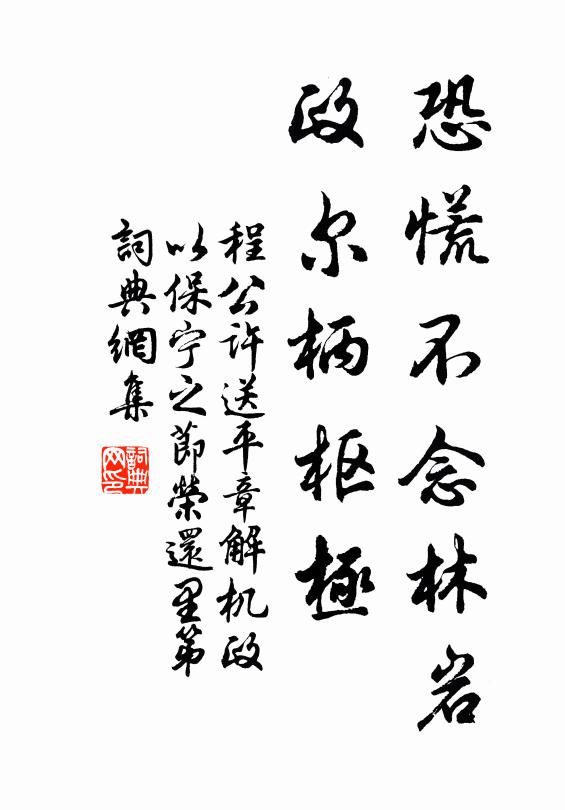 恐慌不念林岩
政尔柄枢極
程公许送平章解机政
以保宁之節榮還里第
詞典網集
詞典网印